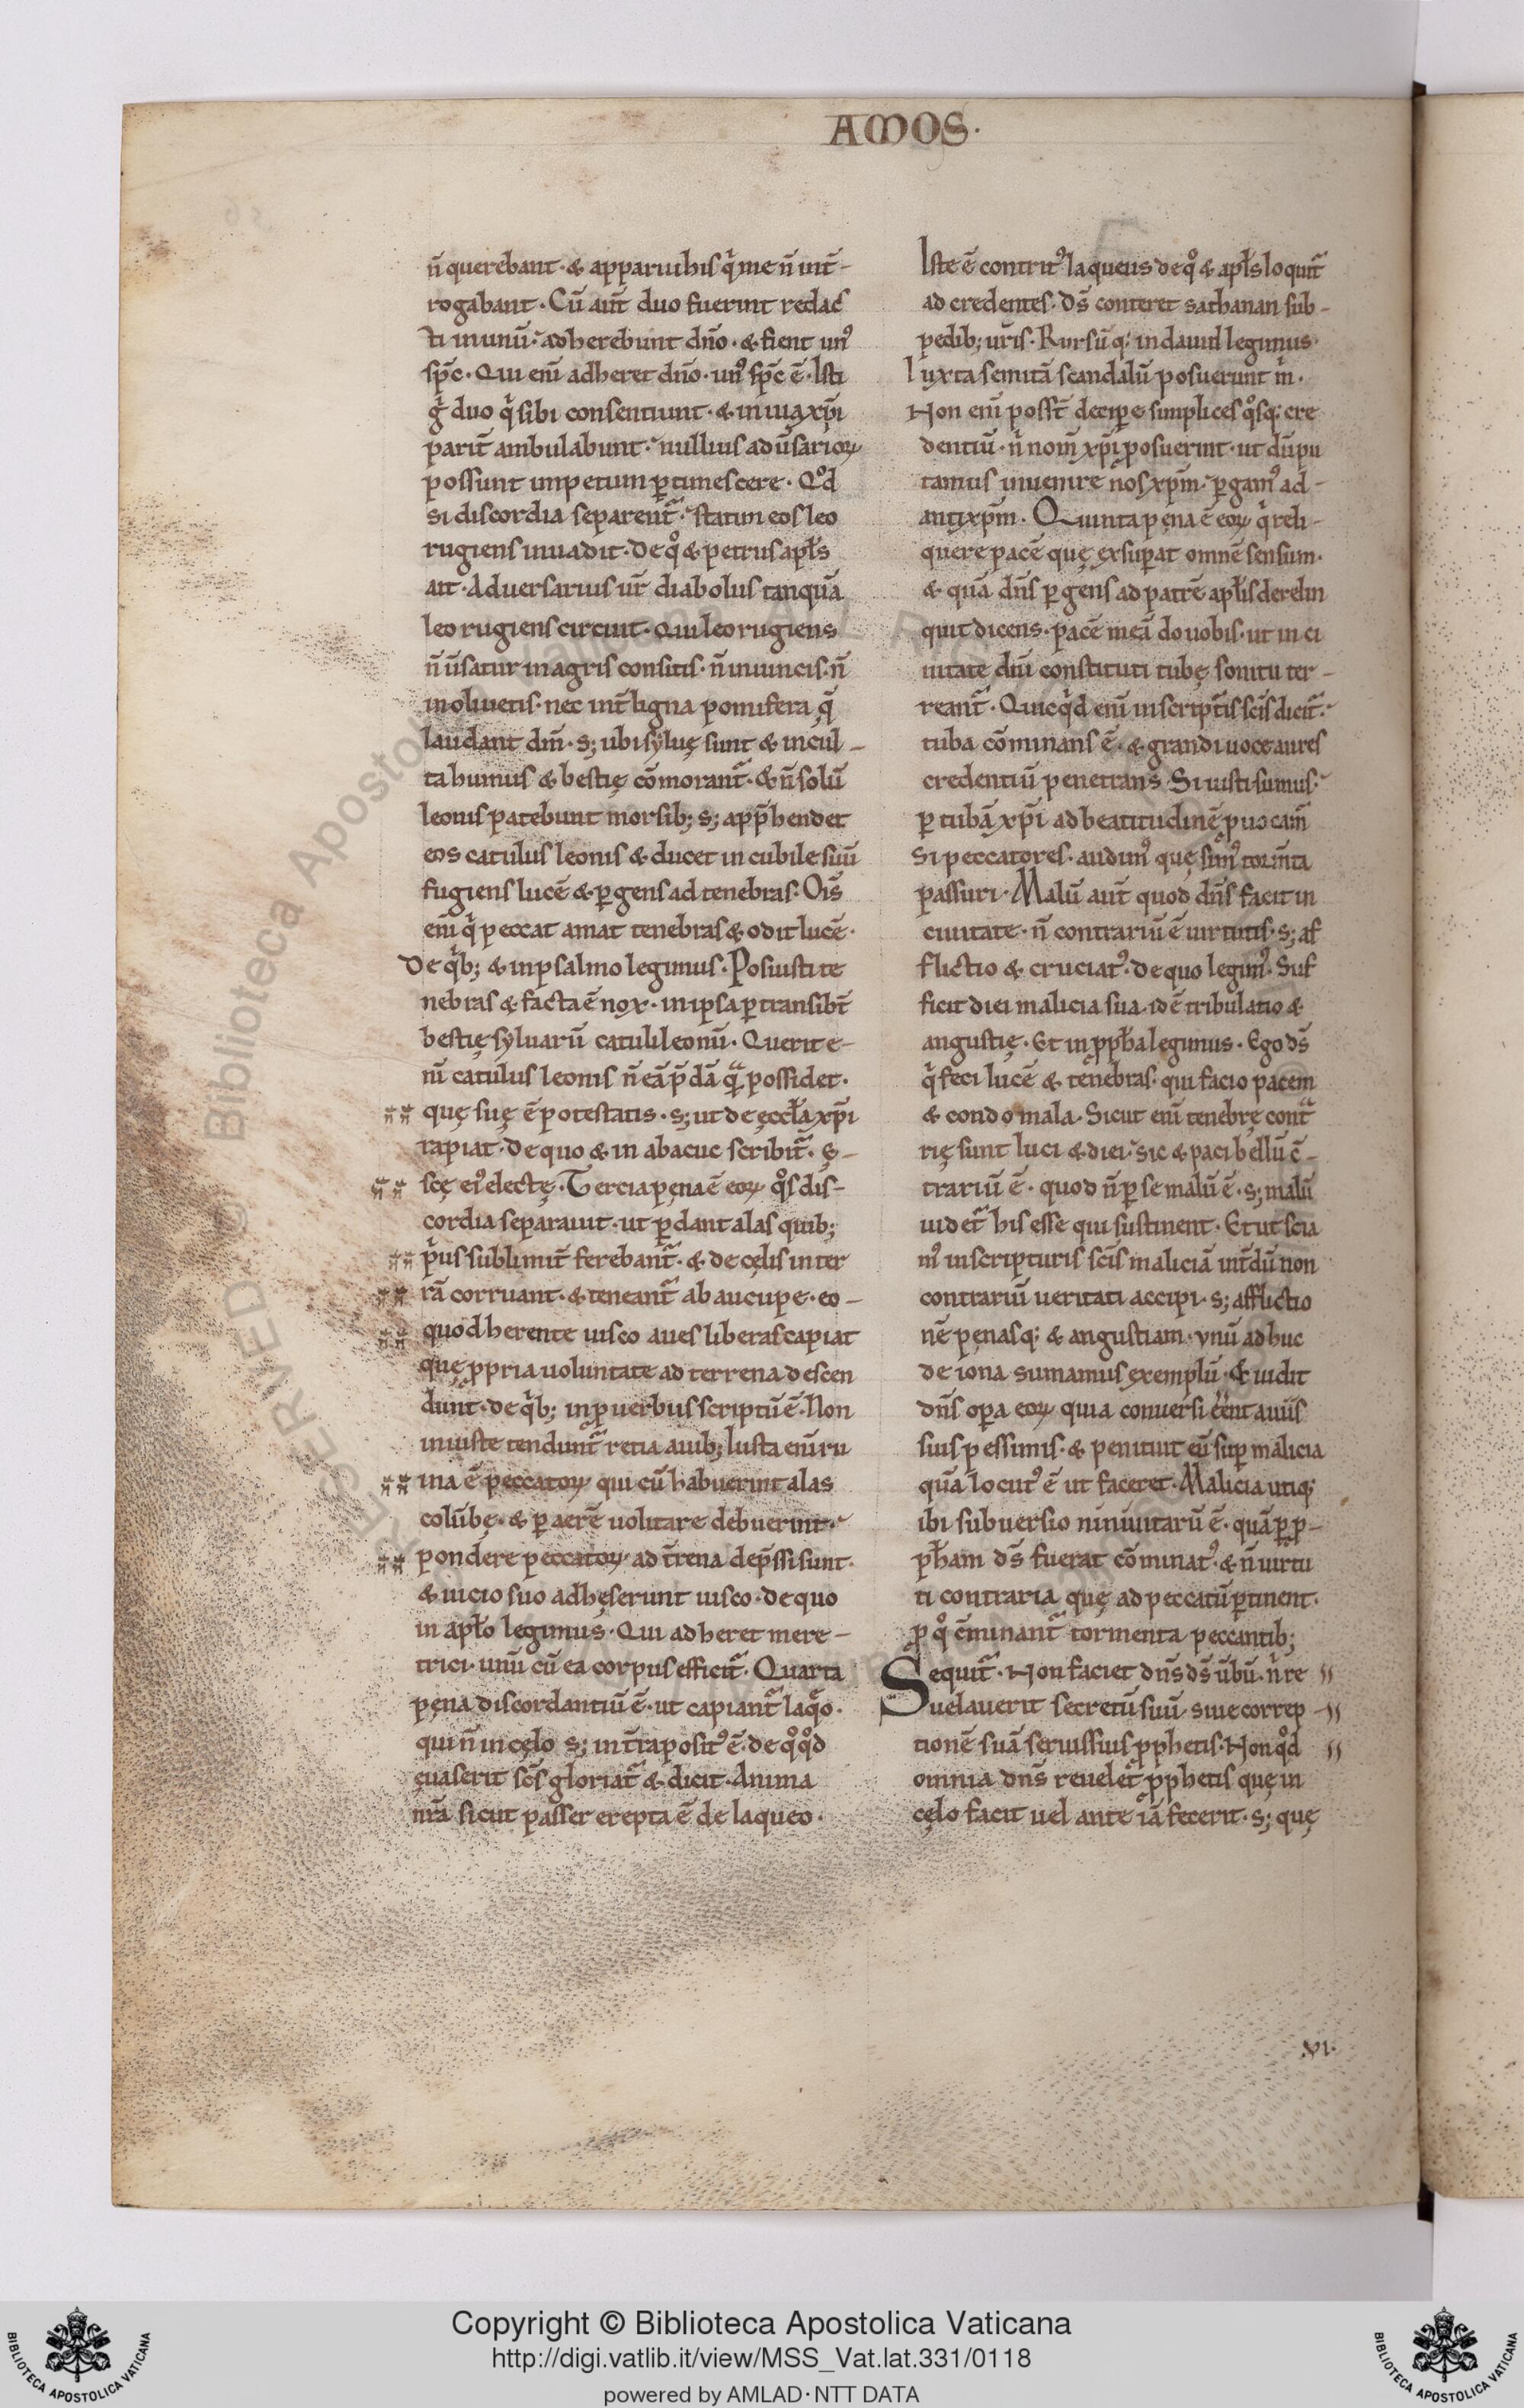 AMOS·
n̄ querebant·& apparui his q̇ me n̄ int̄-
rogabant·Cū aūt duo fuerint redac
ti in unū· adherebunt dn̄o·& fient un⁹
sp̄c·Qui eni̅ adheret dn̄o·un⁹ sp̄c ē·Isti
g̊ duo q̇ sibi consentiunt·& in uia xp̄i
parit̄ ambulabunt· nullius adūsarioꝝ
possunt impetum ꝑtimescere·Qd̊
si discordia separent᷑· statim eos leo
rugiens inuadit·de qͦ & petrus apl̄s
ait·Aduersarius ur̄ diabolus tanquā
leo rugiens circuit·Qui leo rugiens
n̄ ūsatur in agris consitis·n̄ in iuncis·n̄
in oliuetis·nec int̄ ligna pomifera q̄
laudant dm̄·s; ubi syluę sunt & incul-
ta humus & bestię cōmorant᷑·& n̄ solū
leonis patebunt morsib; s; app̄hendet
eos catulus leonis & ducet in cubile suū
fugiens lucē & ꝑgens ad tenebras·Oīs
eni̅ q̇ peccat amat tenebras & odit lucē·
De q̇b; & in psalmo legimus·Posuisti te
nebras & facta ē nox·in ipsa ꝑtransibt̄
bestię syluarū catuli leonū·Querit e-
ni̅ catulus leonis n̄ eā p̄dā qᷓ possidet·
quę suę ē potestatis·s; ut de ęccl̄a xp̄i
rapiat·de quo & in abacuc scribit᷑·ę-
scę ei⁹ electę·Tercia pęna ē eoꝝ qͦs dis-
cordia separauit·ut ꝑdant alas quib;
ṗus sublimit̄ ferebant᷑·& de cęlis in ter
rā corruant·& teneant᷑ ab aucupe·eo-
quod herente uisco aues liberas capiat
quę ꝓpria uoluntate ad terrena descen
dunt·de q̇b; in ꝓuerbiis scriptū ē·Non
iniuste tendunt᷑ retia auib; Iusta eni̅ ru
ina ē peccatoꝝ qui cū habuerint alas
colūbę·& ꝑ aerē uolitare debuerint·
pondere peccatoꝝ ad t̄rena dep̄ssi sunt·
& uicio suo adhęserunt uisco·de quo
in apl̄o legimus·Qui adheret mere-
trici·unū cū ea corpus efficit᷑·Quarta
pęna discordantiū ē·ut capiant᷑ laq̊o·
qui n̄ in cęlo s; in t̄ra posit⁹ ē·de qͦ qͦd
euaserit scs̄ gloriat᷑ & dicit·Anima
nr̄a sicut passer erepta ē de laqueo·
Iste ē contrit⁹ laqueus de qͦ & apl̄s loquit᷑
ad credentes·ds̄ conteret sathanan sub-
pedib; uris̄·Rursū q; in dauid legimus·
Iuxta semitā scandalū posuerunt m̊·
Non eni̅ posst̄ decipe simplices qͦsq; cre
dentiū·n̊ nom̄ xp̄i posuerint·ut dū pu
tamus inuenire nos xp̄m·ꝑgam⁹ ad-
antixp̄m·Quinta pęna ē eoꝝ q̇ reli-
quere pacē quę exsuꝑat omnē sensum·
& quā dn̄s ꝑgens ad patrē apl̄is derelin
quit dicens·pacē meā do uobis·ut in ci
uitate diū constituti tubę sonitu ter-
reant᷑·Quicq̇d eni̅ in scriptis̄ scis̄ dicit᷑·
tuba cōminans ē·& grandi uoce aures
credentiū penetrans·Si iusti sumus·
ꝑ tubā xp̄i ad beatitudinē ꝓuocam᷑
Si peccatores·audim⁹ quę sim⁹ torm̄ta
passuri·Malū aūt quod dn̄s facit in
ciuitate·n̄ contrariū ē uirtutis·s; af
flictio & cruciat⁹·de quo legim⁹·Suf
ficit diei malicia sua·id ē tribulatio &
angustię·Et in ꝓph̄a legimus·Ego ds̄
q̇ feci lucē & tenebras·qui facio pacem
& condo mala·Sicut eni̅ tenebrę contᷓ
rię sunt luci & diei· sic & paci bellū c̄-
trariū ē·quod n̄ ꝑ se malū ē·s; malū
uidet᷑ his esse qui sustinent·Et ut scia
m⁹ in scripturis scis̄ maliciā int̄dū non
contrariū ueritati accipi·s; afflictio
nē pęnasq; & angustiam·unū adhuc
de iona sumamus exemplū·& uidit
dn̄s oꝑa eoꝝ quia conuersi eēnt a uiis
suis pessimis·& penituit eū suꝑ malicia
quā locut⁹ ē ut faceret·Malicia utiq;
ibi subuersio niniuitarū ē·quā ꝑ ꝓ-
ph̄am ds̄ fuerat cōminat⁹·& n̄ uirtu
ti contraria quę ad peccatū ꝑtinent·
ꝓ qͦ c̄minant᷑ tormenta peccantib;
Sequit᷑·Non faciet dn̄s ds̄ ūbū·n̊ re
uelauerit secretū suū siue correp-
tionē suā seruis suis ꝓphetis·Non qͦd
omnia dn̄s reuelet ꝓphetis quę in
cęlo facit uel ante iā fecerit·s; quę
·VI·
Copyright © Biblioteca Apostolica Vaticana
http://digi.vatlib.it/view/MSS_Vat.lat.331/0118
powered by AMLAD·NTT DATA
BIBLIOTECA APOSTOLICA VATICANA
BIBLIOTECA APOSTOLICA VATICANA